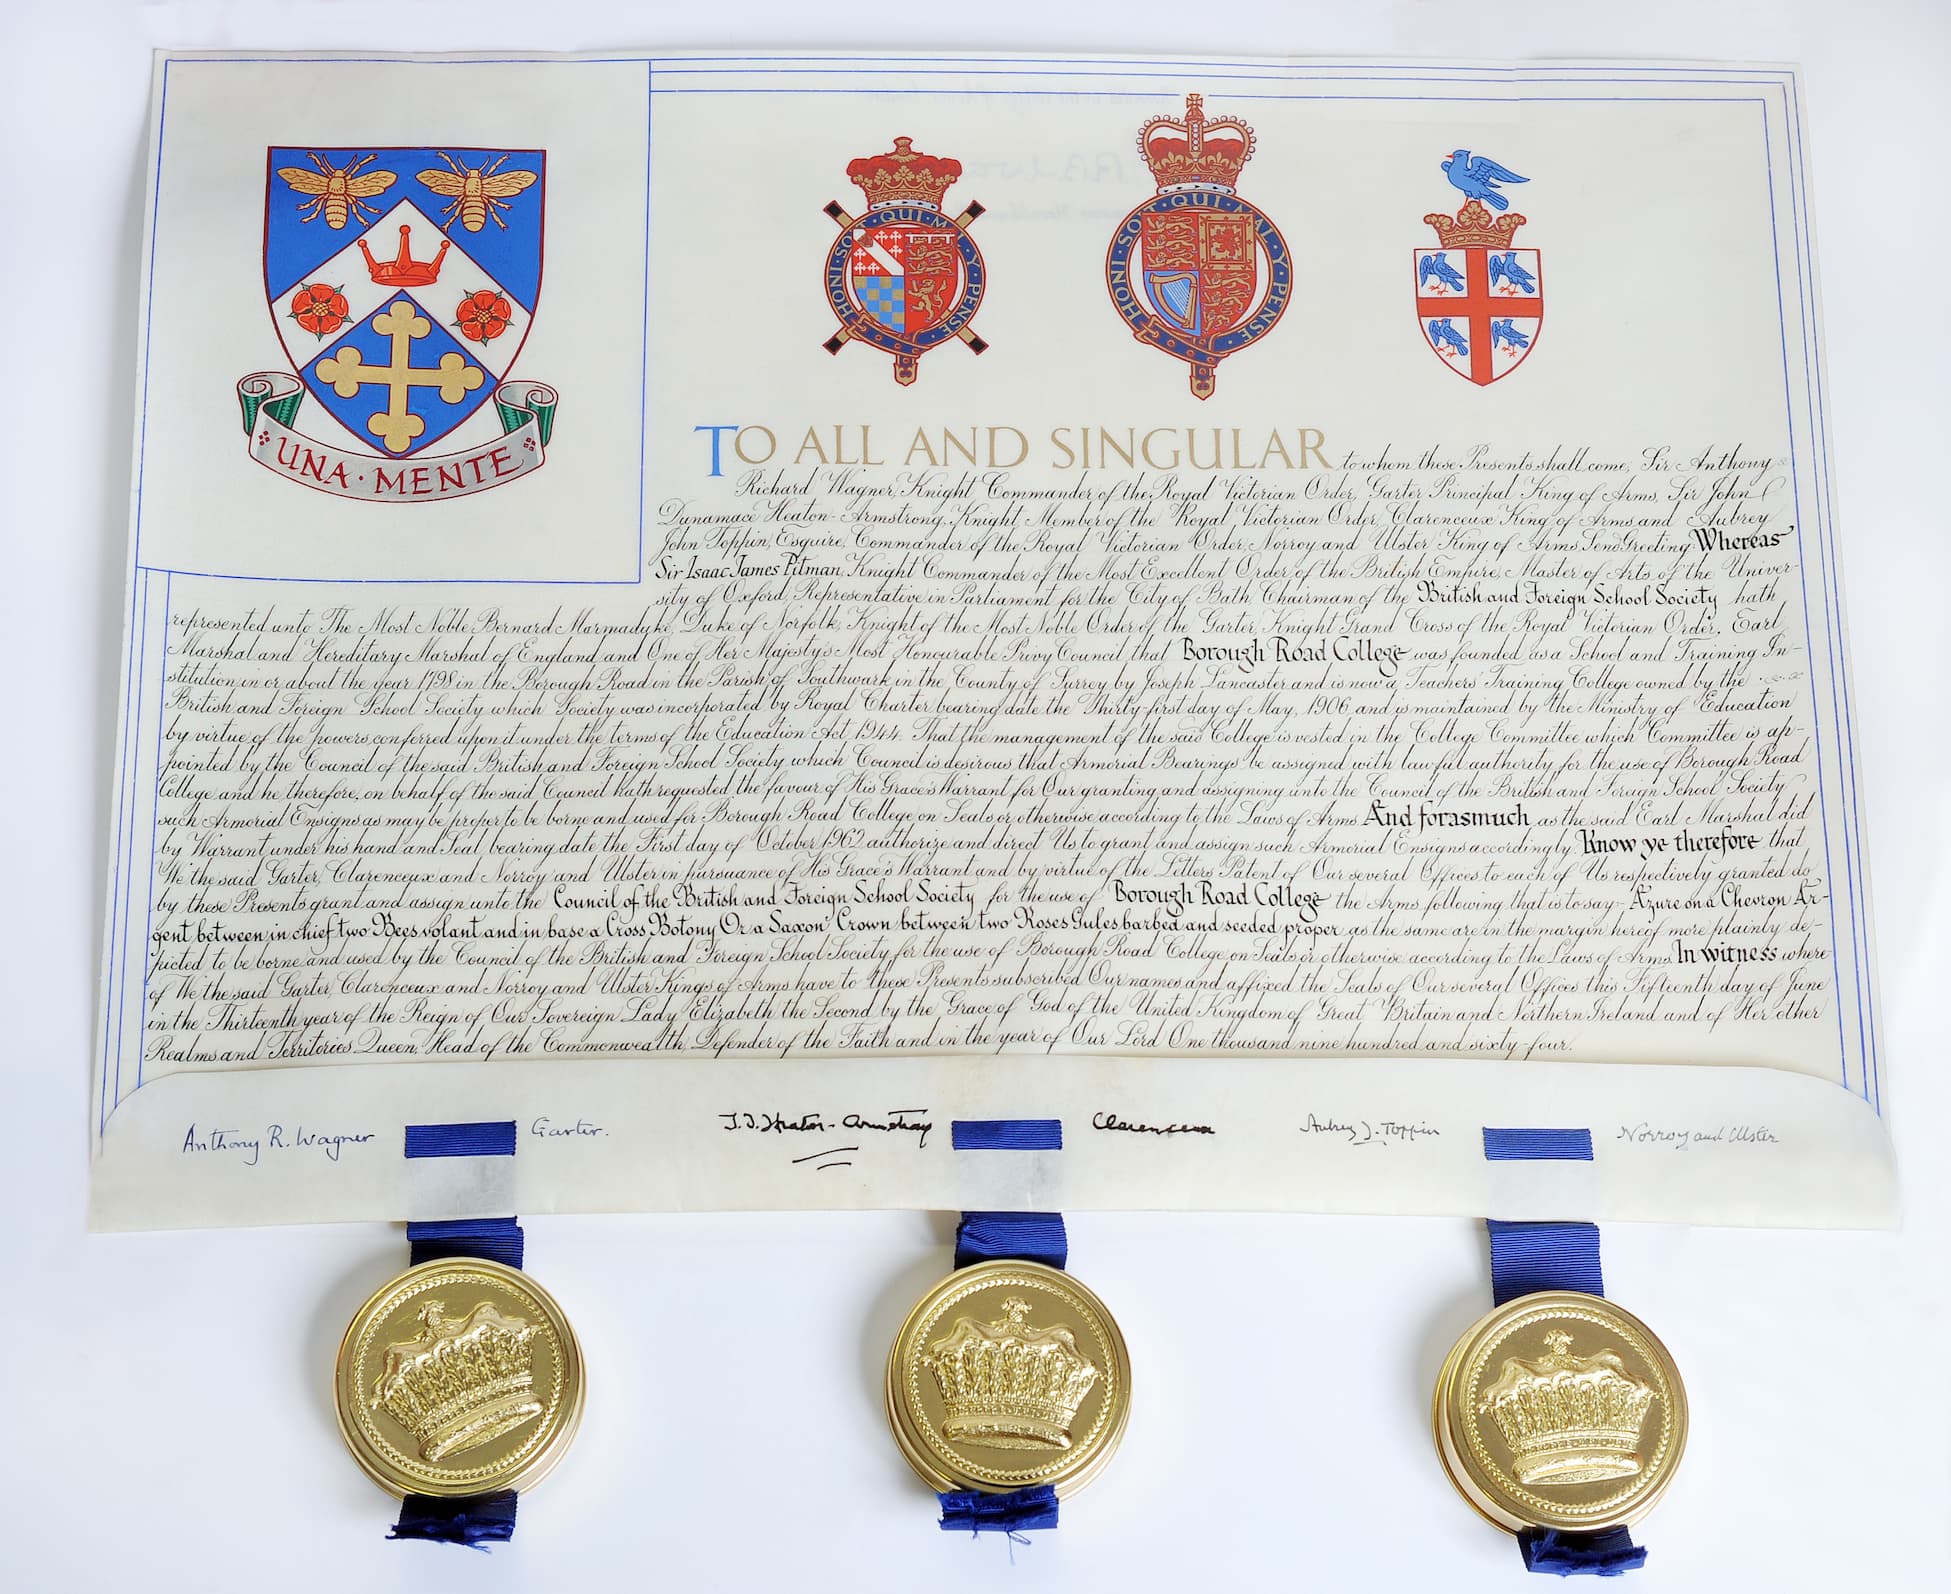 HONI·SOIT·QUI·MAL·Y·PENSE
HONI·SOIT·QUI·MAL·Y·PENSE
UNA·MENTE
TO ALL AND SINGULAR to whom these Presents shall come, Sir Anthony
Richard Wagner, Knight Commander of the Royal Victorian Order, Garter Principal King of Arms, Sir John
Dunamace Heaton-Armstrong, Knight, Member of the Royal Victorian Order, Clarenceux King of Arms and Aubrey
John Toppin, Esquire, Commander of the Royal Victorian Order, Norroy and Ulster King of Arms Send Greeting: Whereas
Sir Isaac James Pitman, Knight Commander of the Most Excellent Order of the British Empire, Master of Arts of the Univer-
sity of Oxford, Representative in Parliament for the City of Bath, Chairman of the British and Foreign School Society hath
represented unto The Most Noble Bernard Marmaduke, Duke of Norfolk, Knight of the Most Noble Order of the Garter, Knight Grand Cross of the Royal Victorian Order, Earl
Marshal and Hereditary Marshal of England, and One of Her Majesty's Most Honourable Privy Council, that Borough Road College was founded as a School and Training In-
stitution in or about the year 1798 in the Borough Road in the Parish of Southwark in the County of Surrey by Joseph Lancaster and is now a Teachers' Training College owned by the
British and Foreign School Society which Society was incorporated by Royal Charter bearing date the Thirty-first day of May, 1906, and is maintained by the Ministry of Education
by virtue of the powers conferred upon it under the terms of the Education Act 1944. That the management of the said College is vested in the College Committee which Committee is ap-
pointed by the Council of the said British and Foreign School Society which Council is desirous that Armorial Bearings be assigned with lawful authority for the use of Borough Road
College and he therefore, on behalf of the said Council hath requested the favour of His Grace's Warrant for Our granting and assigning unto the Council of the British and Foreign School Society
such Armorial Ensigns as may be proper to be borne and used for Borough Road College on Seals or otherwise according to the Laws of Arms. And forasmuch as the said Earl Marshal did
by Warrant under his hand and Seal bearing date the First day of October 1962 authorize and direct Us to grant and assign such Armorial Ensigns accordingly. Know ye therefore that
We the said Garter, Clarenceux and Norroy and Ulster in pursuance of His Grace's Warrant and by virtue of the Letters Patent of Our several Offices to each of Us respectively granted do
by these Presents grant and assign unto the Council of the British and Foreign School Society for the use of Borough Road College the Arms following that is to say:- Azure on a Chevron Ar-
gent between in chief two Bees volant and in base a Cross Botony Or a Saxon Crown between two Roses Gules barbed and seeded proper as the same are in the margin hereof more plainly de-
picted to be borne and used by the Council of the British and Foreign School Society for the use of Borough Road College on Seals or otherwise according to the Laws of Arms. In witness where-
of We the said Garter, Clarenceux and Norroy and Ulster Kings of Arms have to these Presents subscribed Our names and affixed the Seals of Our several Offices this Fifteenth day of June
in the Thirteenth year of the Reign of Our Sovereign Lady Elizabeth the Second by the Grace of God of the United Kingdom of Great Britain and Northern Ireland and of Her other
Realms and Territories Queen, Head of the Commonwealth, Defender of the Faith and in the year of Our Lord One thousand nine hundred and sixty-four.
Anthony R. Wagner Garter. J. D. Heaton-Armstrong Clarenceux Aubrey J. Toppin Norroy and Ulster